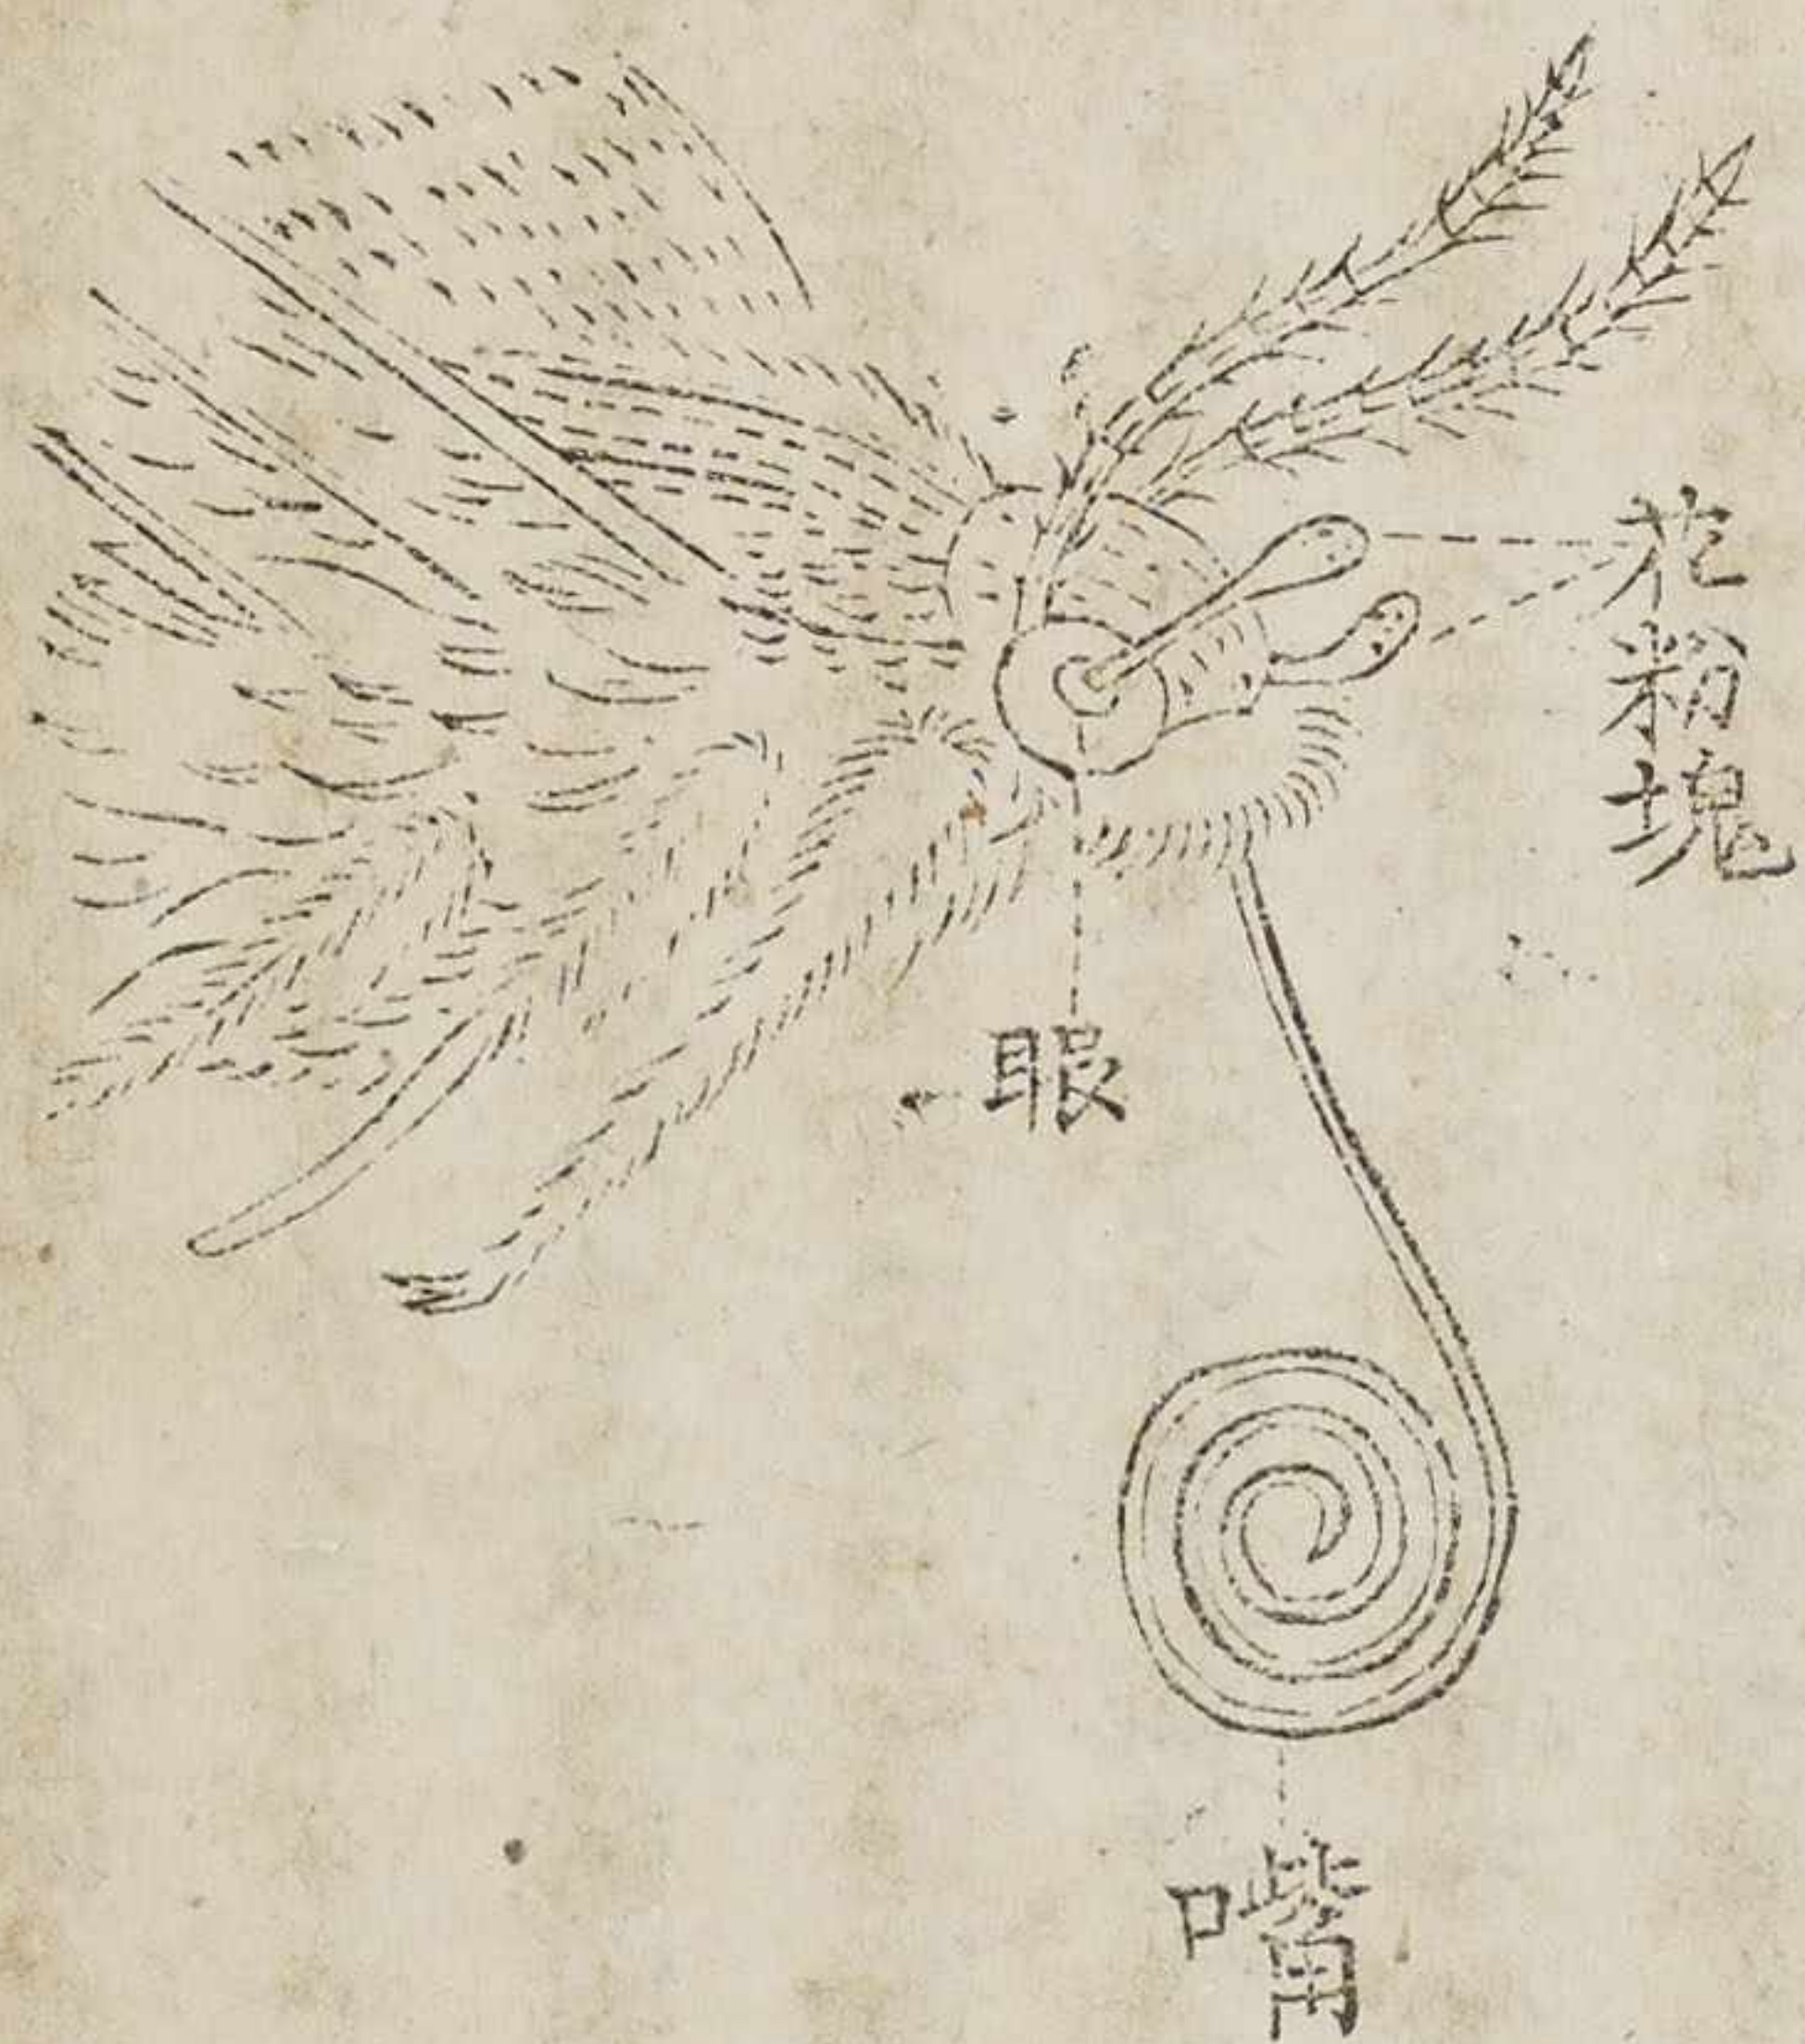 花粉塊
眼
嘴